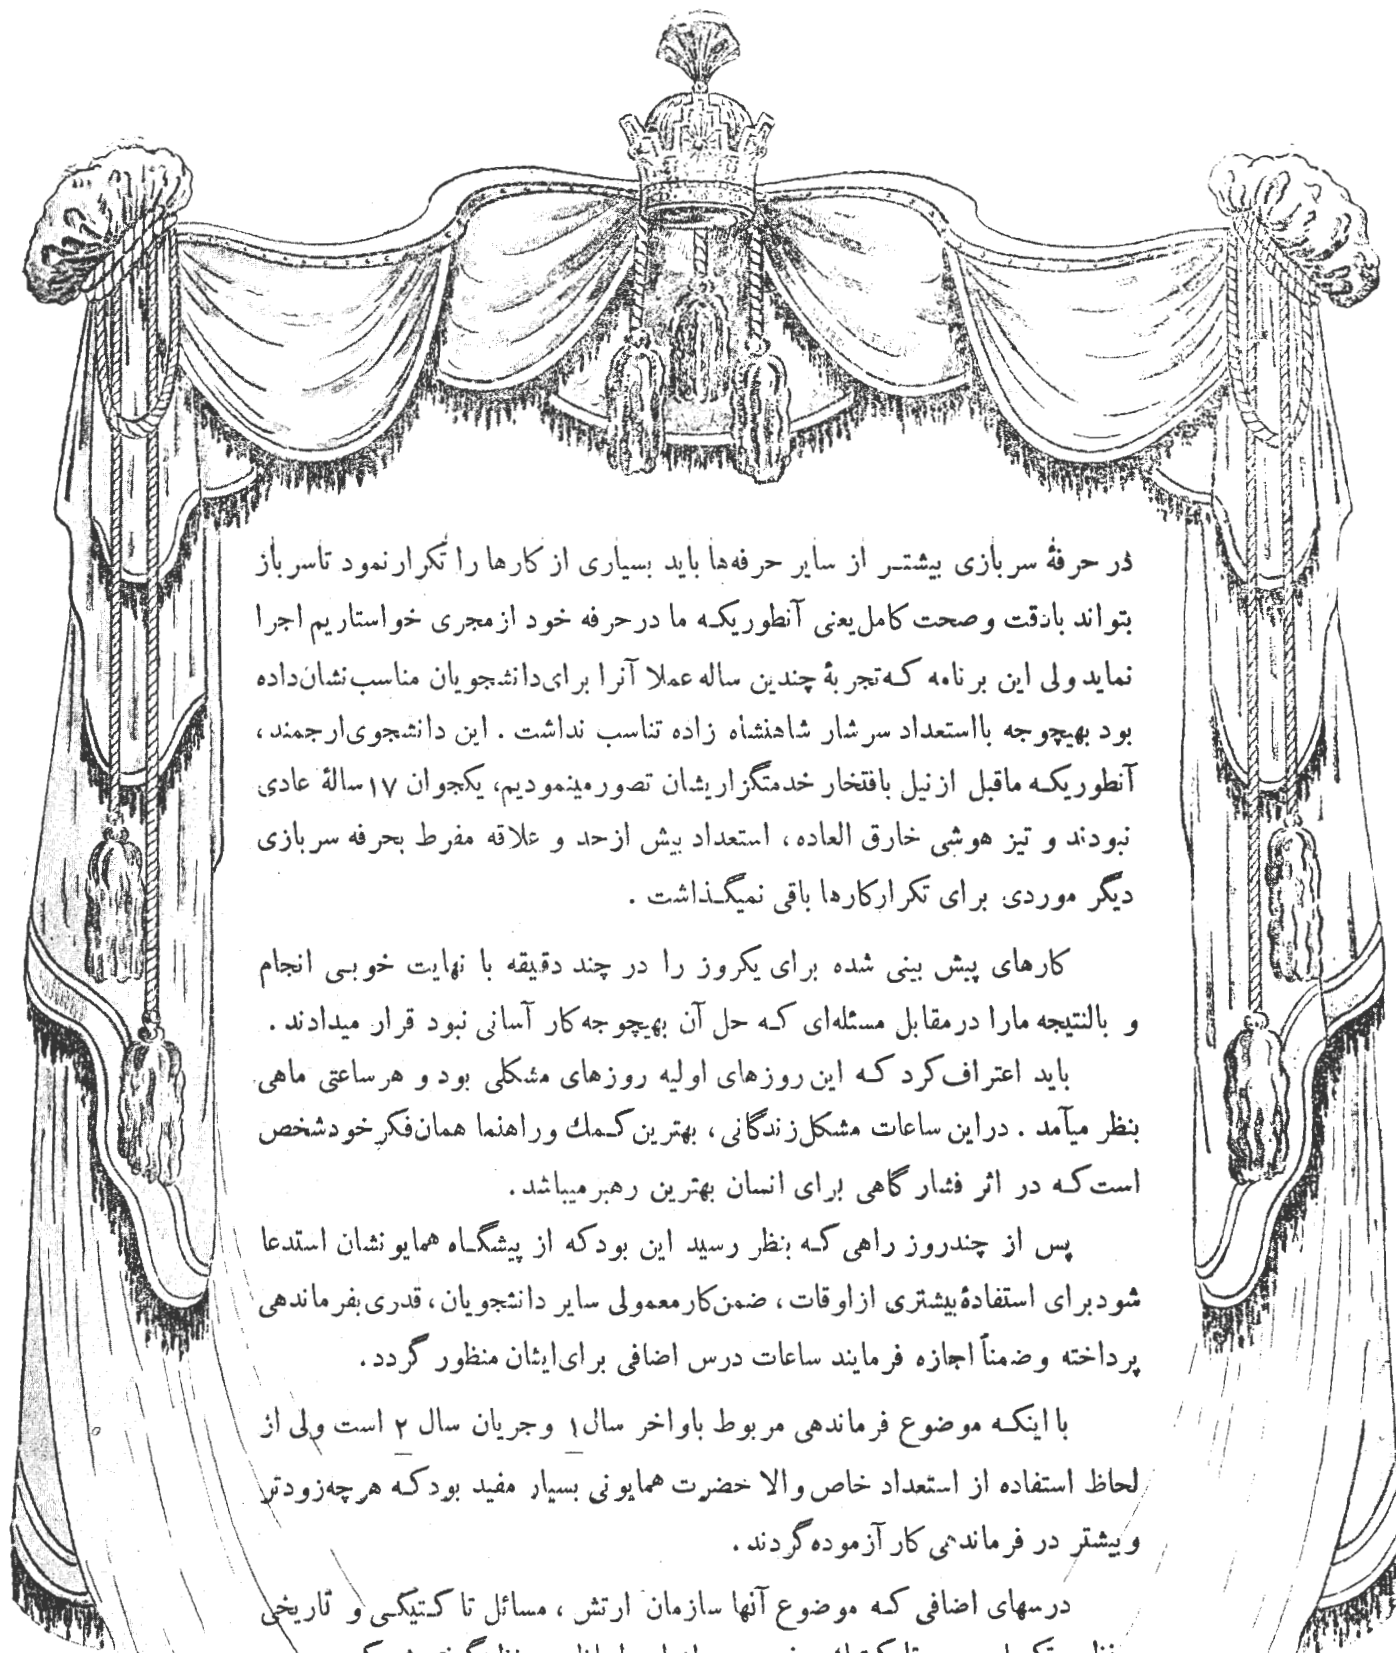 در حرفهٔ سربازی بیشتـر از سایر حرفه‌ها باید بسیاری از کارها را تکرار نمود تا سرباز
بتواند بادقت و صحت کامل یعنی آنطوریکـه ما در حرفه خود از مجری خواستاریم اجرا
نماید ولی این برنامه کـه تجربهٔ چندین ساله عملا آنرا برای دانشجویان مناسب نشان داده
بود بهیچوجه بااستعداد سرشار شاهنشاه زاده تناسب نداشت . این دانشجوی ارجمند ،
آنطوریکـه ماقبل از نیل بافتخار خدمتگزاریشان تصور مینمودیم، یکجوان ۱۷ سالهٔ عادی
نبودند و تیز هوشی خارق العاده ، استعداد بیش از حد و علاقه مفرط بحرفه سربازی
دیگر موردی برای تکرار کارها باقی نمیگـذاشت .
کارهای پیش بینی شده برای یکروز را در چند دقیقه با نهایت خوبـی انجام
و بالنتیجه مارا در مقابل مسئله‌ای کـه حل آن بهیچوجه کار آسانی نبود قرار میدادند .
باید اعتراف کرد کـه این روزهای اولیه روزهای مشکلی بود و هر ساعتی ماهی
بنظر میآمد . در این ساعات مشکل زندگانی ، بهترین کـمك و راهنما همان فکر خود شخص
است کـه در اثر فشار گاهی برای انسان بهترین رهبر میباشد .
پس از چندروز راهی کـه بنظر رسید این بود که از پیشگـاه همایونشان استدعا
شود برای استفادهٔ بیشتری از اوقات ، ضمن کار معمولی سایر دانشجویان ، قدری بفرماندهی
پرداخته و ضمناً اجازه فرمایند ساعات درس اضافی برای ایشان منظور گردد .
با اینکـه موضوع فرماندهی مربوط باواخر سال ۱ و جریان سال ۲ است ولی از
لحاظ استفاده از استعداد خاص والا حضرت همایونی بسیار مفید بود کـه هر چه زودتر
و بیشتر در فرماندهی کار آزموده گردند .
درسهای اضافی کـه موضوع آنها سازمان ارتش ، مسائل تاکـتیکـی و تاریخی